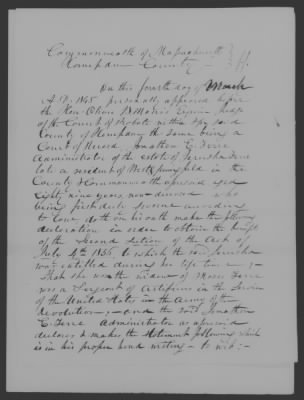 Commonwealth of Massachusetts }
Hampden County } SS.
On this fourth day of March
A.D. 1845 personally appeared before
the Hon. Oliver B. Morris Esquire Judge
of the Court of Probate within & for said
County of Hampden the same being a
Court of Record, Jonathan E. Ferre
Administrator of the estate of Jerusha Ferre
late a resident of West Springfield in the
County & Commonwealth aforesaid aged
Eighty nine years, now deceased who
being first duly sworn according
to Law doth on his oath make the following
declaration in order to obtain the benefit
of the Second Section of the Act of
July 4th 1836, to which the said Jerusha
was entitled during her life time; -
That she was the widow of Moses Ferre
was a Sergeant of Artificers in the Service
of the United States in the Army of the
Revolution; - and the said Jonathan
E. Ferre Administrator as aforesaid
declares & makes the Statement following which
is in his proper hand writing - to wit: -